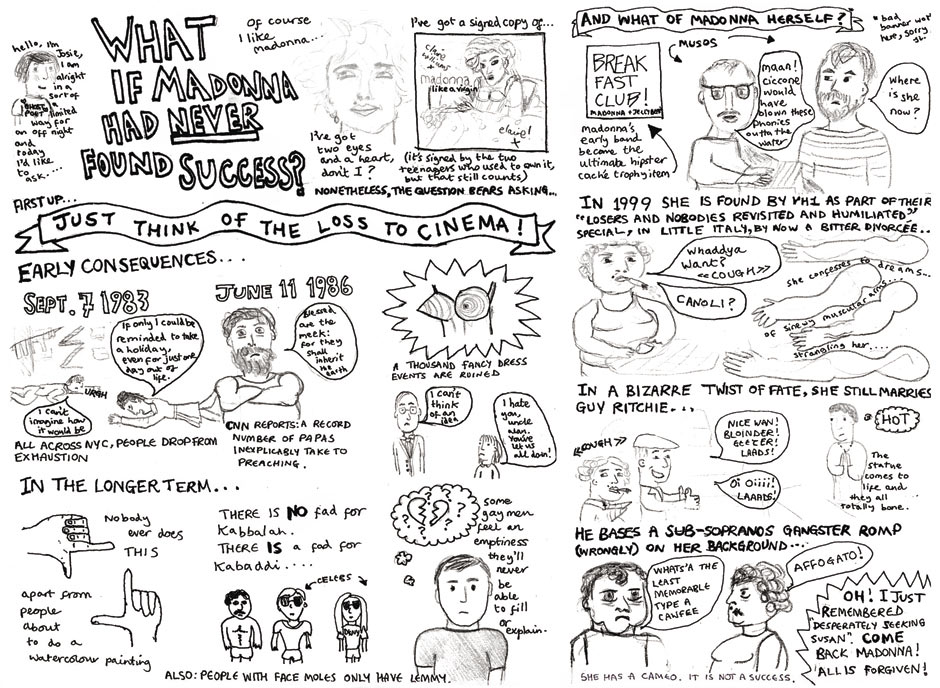 hello, I'm
Josie,
I am
alright
in a
sort of
a
limited
way for
an off night
and
today
I'd like
to
ask....
WHAT
IF MADONNA
HAD NEVER
FOUND SUCCESS?
of course
I like
madonna...
I've got
two eyes
and a heart,
don't I?
I've got a signed copy of...
madonna
like a virgin
(it's signed by the two
teenagers who used to own it,
but that still counts)
NONETHELESS, THE QUESTION BEARS ASKING...
FIRST UP...
JUST THINK OF THE LOSS TO CINEMA!
EARLY CONSEQUENCES...
SEPT. 7 1983
If only I could be
reminded to take
a holiday,
even for just one
day out of
life.
URGH
I can't
imagine how
it would be
ALL ACROSS NYC, PEOPLE DROP FROM
EXHAUSTION
JUNE 11 1986
Blessed
are the
meek:
for they
shall
inherit
the earth
CNN REPORTS: A RECORD
NUMBER OF PAPAS
INEXPLICABLY TAKE TO
PREACHING.
A THOUSAND FANCY DRESS
EVENTS ARE RUINED
I can't
think
of an
idea
I hate
you,
uncle
alan.
You've
let us
all down!
IN THE LONGER TERM...
Nobody
ever does
THIS
apart from
people
about
to do a
watercolour painting
THERE IS NO fad for
Kabbalah.
THERE IS a fad for
Kabaddi....
CELEBS
some
gay men
feel an
emptiness
they'll
never
be
able
to fill
or
explain.
ALSO: PEOPLE WITH FACE MOLES ONLY HAVE LEMMY.
AND WHAT OF MADONNA HERSELF?
* bad
banner work
here, sorry
MUSOS
BREAK
FAST
CLUB!
MADONNA + JELLYBEAN
madonna's
early band
become the
ultimate hipster
caché trophy item
maan!
ciccone
would
have
blown these
phonies
outta the
water
Where
is she
now?
IN 1999 SHE IS FOUND BY VH1 AS PART OF THEIR
"LOSERS AND NOBODIES REVISITED AND HUMILIATED"
SPECIAL, IN LITTLE ITALY, BY NOW A BITTER DIVORCEE...
Whaddya
want?
<<COUGH>>
CANOLI?
she confesses to dreams...
of sinewy muscular arms...
strangling her....
IN A BIZARRE TWIST OF FATE, SHE STILL MARRIES
GUY RITCHIE...
<<COUGH>>
NICE WAN!
BLOINDER!
GEEZER!
LAADS!
Oi Oiiii!
LAAADS!
HOT
The
statue
comes to
life and
they all
totally bone.
HE BASES A SUB-SOPRANOS GANGSTER ROMP
(WRONGLY) ON HER BACKGROUND...
WHATS'A THE
LEAST
MEMORABLE
TYPE A
CAWFEE
AFFOGATO!
OH! I JUST
REMEMBERED
"DESPERATELY SEEKING
SUSAN". COME
BACK MADONNA!
ALL IS FORGIVEN!
SHE HAS A CAMEO. IT IS NOT A SUCCESS.